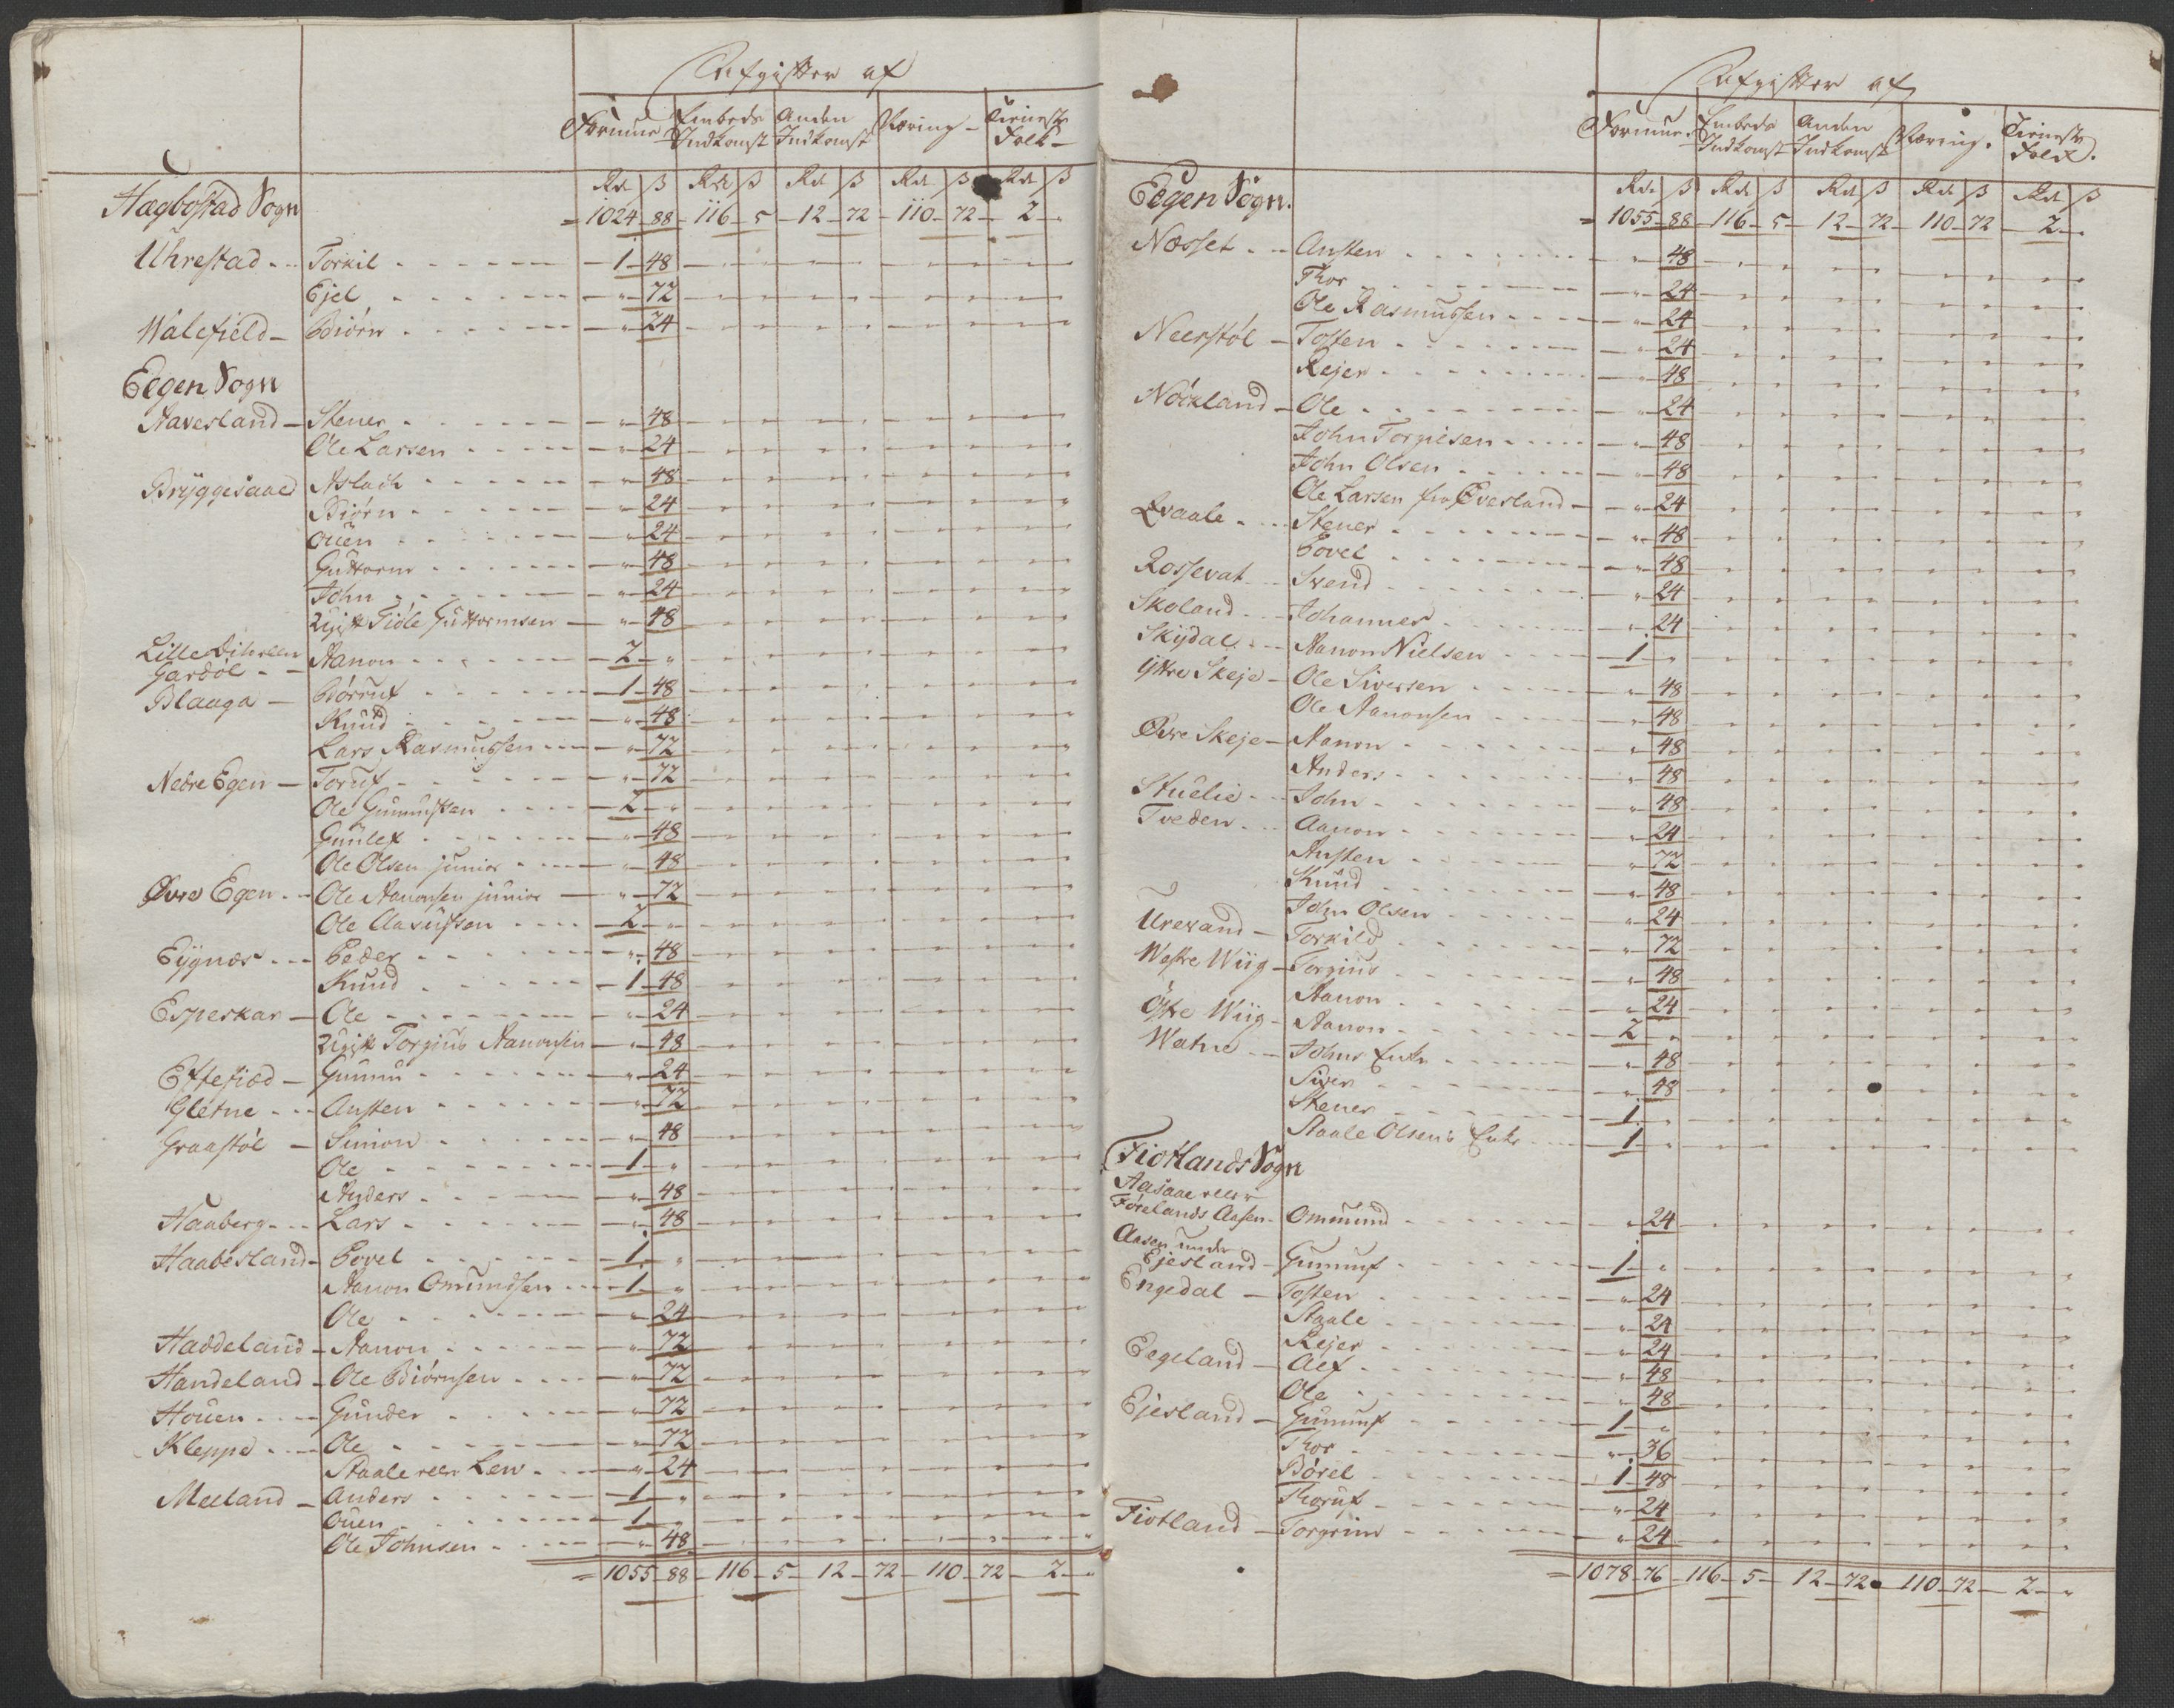 Afgifter af
Formue Embeds Indkomst Anden Indkomst Næring Tieneste Folk
Rd ß Rd ß Rd ß Rd ß Rd ß
Hægbostad Sogn = 1024 - 88 - 116 - 5 - 12 - 72 - 110 - 72 - 2 - "
Uhrestad - Torkil - 1 - 48
Ejel - " - 72
Walefield - Biørn - " - 24
Eegen Sogn
Aavesland - Stener - " - 48
Ole Larsen - " - 24
Bryggesaaed Aslach - " - 48
Biørn - " - 24
Ouen - " - 24
Guttorm - " - 48
John - " - 24
Ugift Tiøle Guttormsen - " - 48
Lille
Gardøl - Aanon - 2 - "
Blaaga - Børruf - 1 - 48
Knud - " - 48
Lars Rasmussen - " - 72
Nedre Egen - Toruf - " - 72
Ole Gunnufsen - 2 - "
Gunlef - " - 48
Ole Olsen junior - " - 48
Øvre Egen - Ole Aanonsen junior - " - 72
Ole Aasufsen - 2 - "
Eygnæs - Peder - " - 48
Knud - 1 - 48
Esperkar - Ole - " - 24
Ugift Torgius Aanonsen - " - 48
Effefiæd - Gunnu - " - 24
Gletne - Austen - " - 72
Graastøl - Simon - " - 48
Ole - 1 - "
Anders - " - 48
Haaberg - Lars - " - 48
Haabesland - Povel - 1 - "
Aanon Omundsen - 1 - "
Ole - " - 24
Haddeland - Aanon - " - 72
Handeland - Ole Biørnsen - " - 72
Houen - Gunder - " - 72
Kleppe - Ole - " - 72
Staale eller Lew - " - 24
Meeland - Anders - 1 - "
Ouen - 1 - "
Ole Johnsen - " - 48
= 1055 - 88 - 116 - 5 - 12 - 72 - 110 - 72 - 2 - "
Afgifter af
Formue Embeds Indkomst Anden Indkomst Næring. Tieneste Folk.
Rd ß Rd ß Rd ß Rd ß Rd ß
Eegen Sogn. = 1055 - 88 - 116 - 5 - 12 - 72 - 110 - 72 - 2 - "
Næsset - Austen - " - 48
Thor - " - 24
Ole Rasmussen - " - 24
Neerstøl - Tosten - " - 24
Rejer - " - 48
Nöckland - Ole - " - 24
John Torgiesen - " - 48
John Olsen - " - 48
Ole Larsen fra Øvesland - " - 24
Qvaale - Stener - " - 48
Povel - " - 48
Rossevat - Svend - " - 24
Skoland - Johannes - " - 24
Skydal - Aanon Nielsen - 1 - "
Yttre Skeje - Ole Siversen - " - 48
Ole Aanonsen - " - 48
Øvre Skeje - Aanon - " - 48
Anders - " - 48
Stuelie - John - " - 48
Tveden - Aanon - " - 24
Austen - " - 72
Knud - " - 48
John Olsen - " - 24
Urevand - Torkild - " - 72
Westre Wiig - Torgius - " - 48
Aanon - " - 24
Östre Wiig - Aanon - 2 - "
Watne - Johns Enke - " - 48
Siver - " - 48
Stener - 1 - "
Staale Olsens Enke - 1 - "
Fiotlands Sogn
Aasaae eller
Förelands Aasen - Ommund - " - 24
Aasen under
Ejesland - Gunnuf - 1 - "
Engedal - Tosten - " - 24
Staale - " - 24
Rejer - " - 24
Eegeland - Alf - " - 48
Ole - " - 48
Ejesland - Gunnuf - 1 - "
Thor - " - 36
Børel - 1 - 48
Thoruf - " - 24
Fiotland - Torgrim - " - 24
= 1078 - 76 - 116 - 5 - 12 - 72 - 110 - 72 - 2 - "